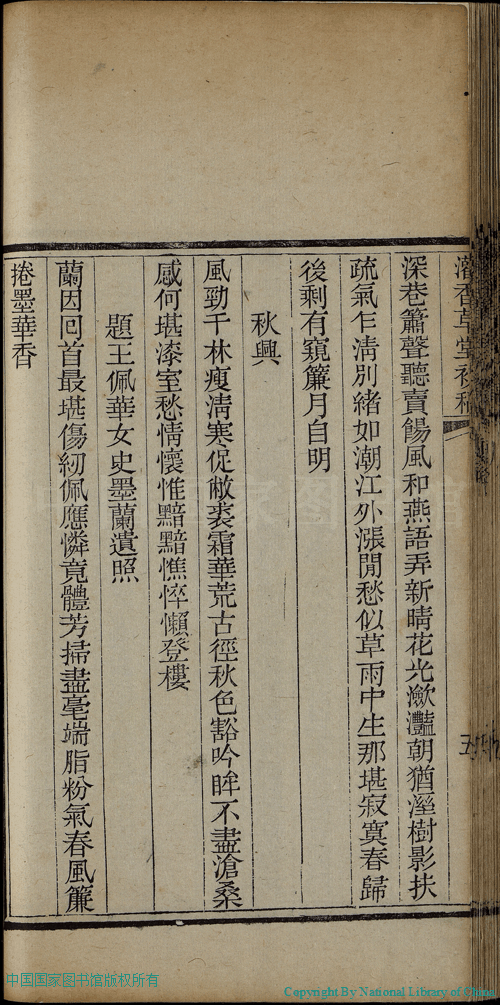 深巷簫聲聽賣餳風和燕語弄新晴花光瀲灩朝猶溼樹影扶
疏氣乍淸別緒如潮江外漲閒愁似草雨中生那堪寂寞春歸
後剩有窺簾月自明
秋興
風勁千林瘦淸寒促敝裘霜華荒古徑秋色豁吟眸不盡滄桑
感何堪漆室愁情懷惟黯黯憔悴懶登樓
題王佩華女史墨蘭遺照
蘭因回首最堪傷紉佩應憐竟體芳掃盡毫端脂粉氣春風簾
捲墨華香
中国国家图书馆版权所有
Copyright By National Library of China